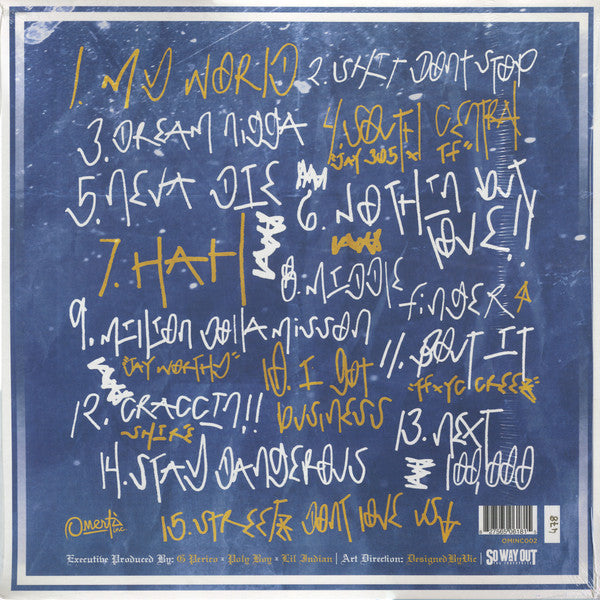 1 MY WORLD
2. SHIT DONT STOP
3. DREAM NIGGA
4. SOUTH CENTRAL
"JAY 305 x TF"
5. NEVA DIE
6. NOTHIN BUT
LOVE!!
7. HAH
8. MIDDLE
FINGER
9. MILLION DOLLA MISSON
"JAY WORTHY"
10. I GOT
BUSINESS
11. BOUT IT
"TF x YC CREEK"
12. CRACCIN!!
~SHIKE~
13. NEXT
100,000
14. STAY DANGEROUS
15. STREETS DONT LOVE US
Omertà
inc
Executive Produced By: G Perico x Poly Boy x Lil Indian | Art Direction: DesignedByVic |
SO WAY OUT
OMINC002
478